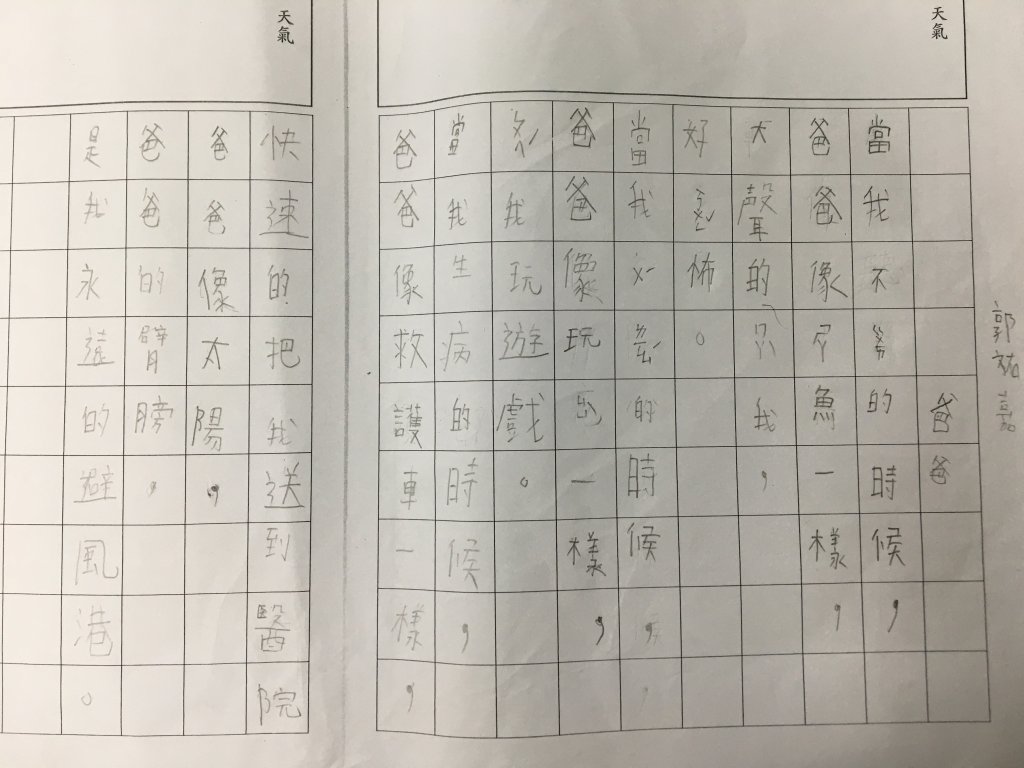 天氣
郭祐
爸爸
當我不的時候，
爸爸像ㄕㄚ魚一樣，
大聲的我，
好怖。
當我的時候，
爸爸像玩一樣，
我玩遊戲。
當我生病的時候，
爸爸像救護車一樣，
天氣
快速的把我送到醫院
爸爸像太陽，
爸爸的臂膀，
是我永遠的避風港。